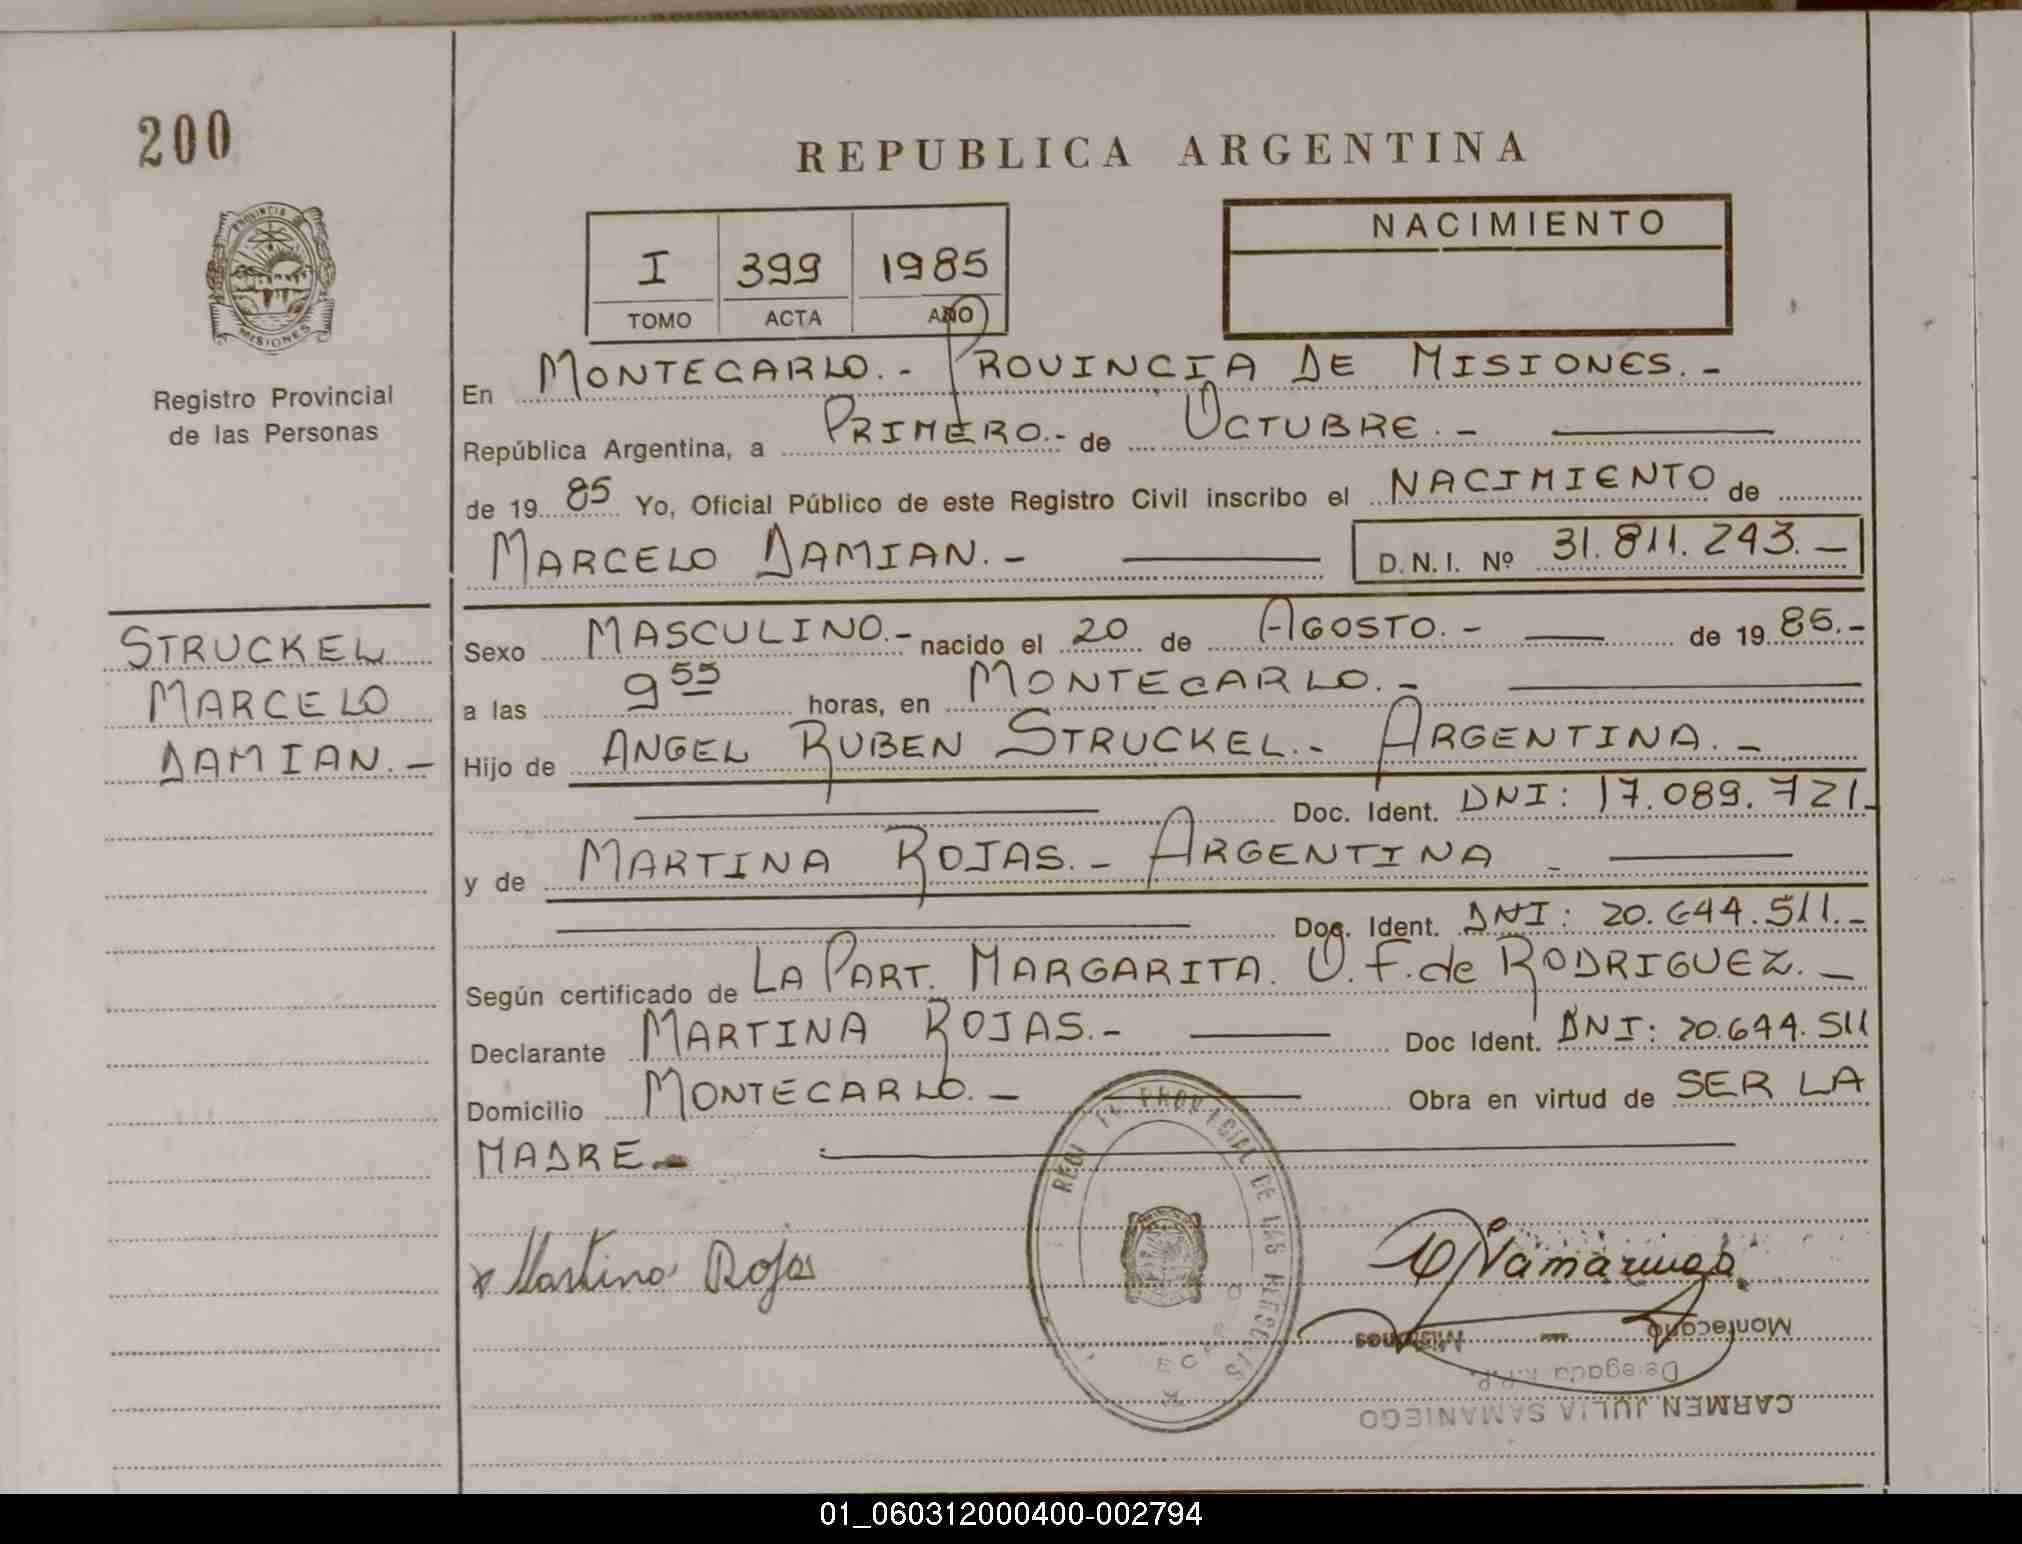 200
REPUBLICA ARGENTINA
PROVINCIA DE
MISIONES
Registro Provincial
de las Personas
I 399 1985
TOMO ACTA AÑO
NACIMIENTO
En MONTECARLO.- PROVINCIA DE MISIONES.-
República Argentina, a PRIMERO.- de OCTUBRE.-
de 19 85 Yo, Oficial Público de este Registro Civil inscribo el NACIMIENTO de
MARCELO DAMIAN.- D.N.I. Nº 31.811.243.-
STRUCKEL
MARCELO
DAMIAN.-
Sexo MASCULINO.- nacido el 20 de AGOSTO.- de 19 85.-
a las 9 55 horas, en MONTECARLO.-
Hijo de ANGEL RUBEN STRUCKEL.- ARGENTINA.-
Doc. Ident. DNI: 17.089.721.
y de MARTINA ROJAS.- ARGENTINA -
Doc. Ident. DNI: 20.644.511.-
Según certificado de LA PART. MARGARITA. O. F. de RODRIGUEZ.-
Declarante MARTINA ROJAS.- Doc Ident. DNI: 20.644.511
Domicilio MONTECARLO.- Obra en virtud de SER LA
MADRE-
PROVINCIAL DE LAS PERSONAS
x Martina Rojas
Montecarlo - Misiones
Delegada R.P.P.
CARMEN JULIA SAMANIEGO
01_060312000400-002794